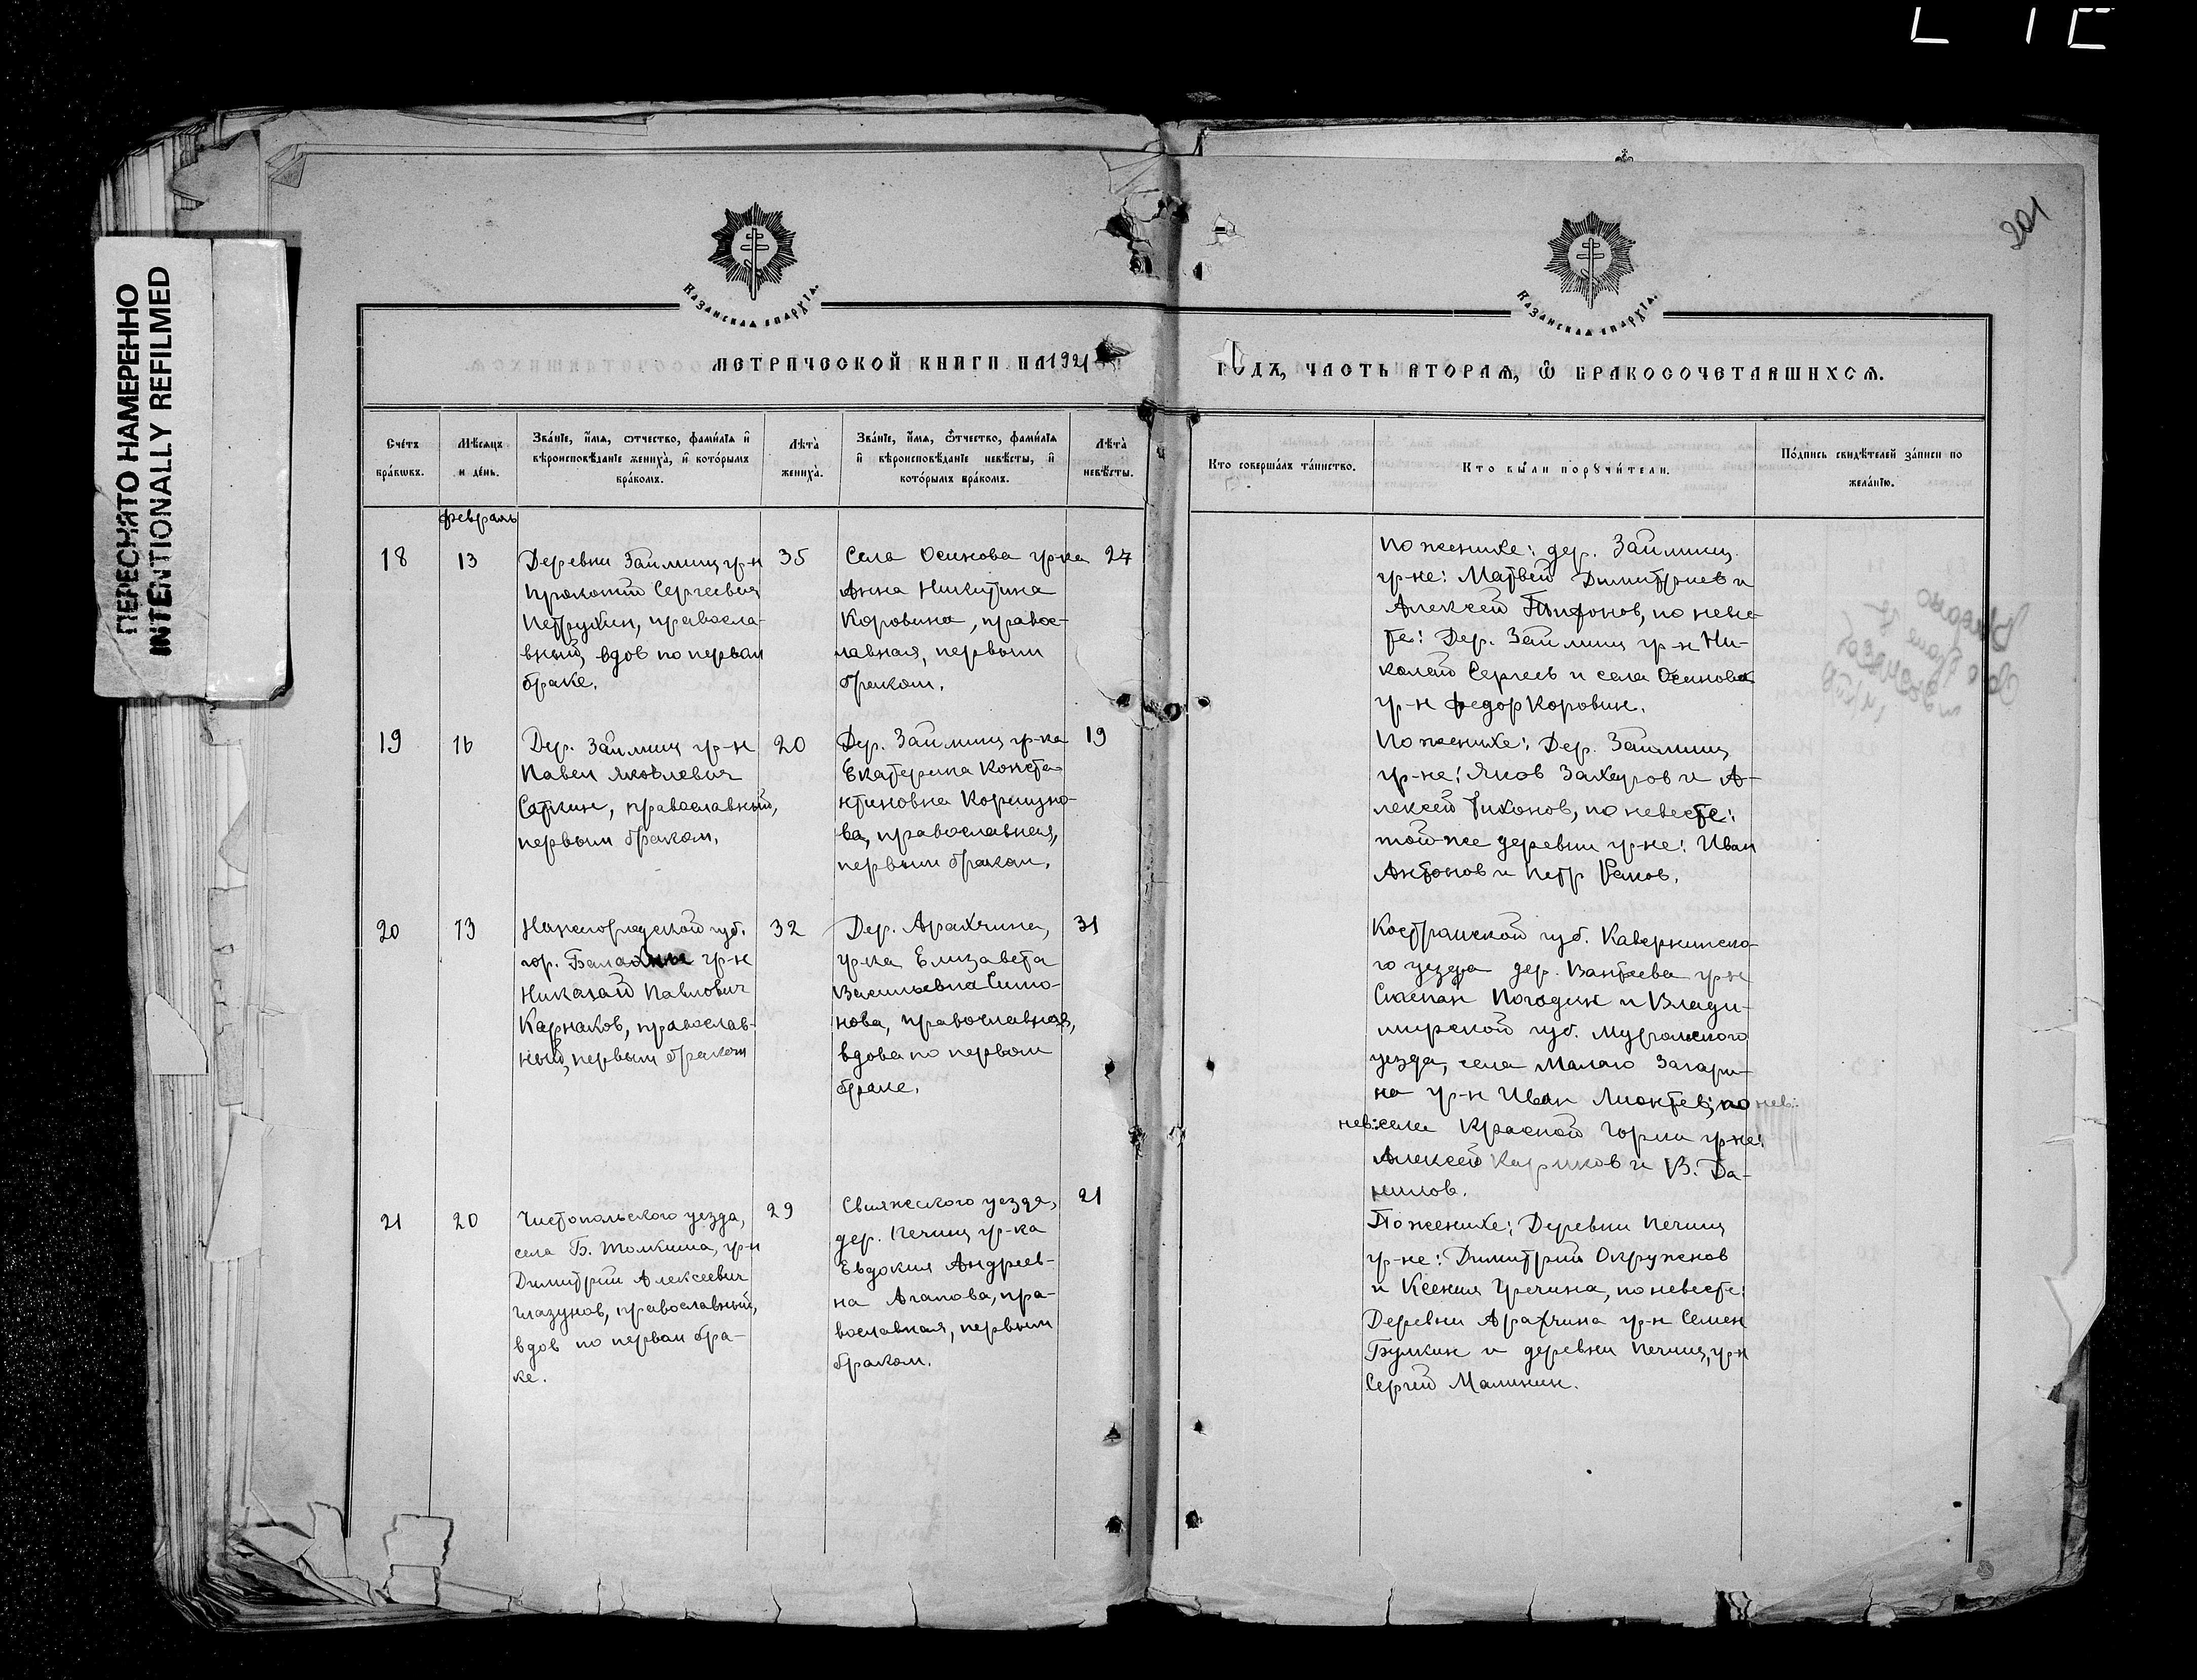 ПЕРЕСНЯТО НАМЕРЕННО
INTENTIONALLY REFILMED
201
КАЗАНСКАЯ ЕПАРХІЯ.
КАЗАНСКАЯ ЕПАРХІЯ.
МЕТРИЧЕСКОЙ КНИГИ НА 1921
ГОДЪ, ЧАСТЬ ВТОРАЯ, Ѿ БРАКОСОЧЕТАВШИХСЯ.
Счéтъ бра́кѡвъ.
Мѣ́сяцъ и де́нь.
Зва́нїе, и́мя, ѻтчество, фами́лїя и вѣроисповѣ́данїе жениха̀, и кото́рымъ бра́комъ.
Лѣта̀ жениха̀.
Зва́нїе, и́мя, ѻ́тчество, фами́лїя и вѣроисповѣ́данїе невѣ́сты, и кото́рымъ бра́комъ.
Лѣта̀ невѣ́сты.
Кто соверша́лъ та́инство.
Кто бы́ли порꙋчи́тели.
По́дпись свидѣ́телей за́писи по жела́нїю.
февраль
18
13
Деревни Займищ гр-н
Прокопий Сергеевич
Петрухин, правосла-
вный, вдов по первом
браке.
35
Села Осинова гр-ка
Анна Никитина
Коровина, правос-
лавная, первым
браком.
27
По женихе: дер. Займищ
гр-не: Матвей Димитриев и
Алексей Тихонов, по неве-
те: Дер. Займищ гр-н Ни-
колай Сергеев и села Осинова
гр-н Федор Коровин.
19
16
Дер. Займищ гр-н
Павел Яковлевич
Саткин, православный,
первым браком.
20
Дер. Займищ гр-ка
Екатерина Конста-
нтиновна Кормузно-
ва, православная,
первым браком.
19
По женихе: Дер. Займищ
гр-не: Яков Захаров и А-
лексей Тихонов, по невесте:
той-же деревни гр-не: Иван
Антонов и Петр
20
13
Нижегородской губ.
гор. гр-н
Николай Павлович
Карнаков, православ-
ный, первым браком
32
Дер. Арахчина,
гр-ка Елизавета
Васильевна Симо-
нова, православная,
вдова по первом
браке.
31
Костромской губ. Кавернинско-
го уезда дер. Вантеева гр-н
Степан Погодин и Влади-
мирской губ. Муромского
уезда, села Малаго Загари-
на гр-н Иван по нев:
нев: села Красной Горки гр-не:
Алексей и В. Да-
нилов.
21
20
Чистопольского уезда,
села Б. Толкиша, гр-н
Димитрий Алексеевич
Глазунов, православный,
вдов по первом бра-
ке.
29
Свияжского уезда,
дер. Печищ гр-ка
Евдокия Андреев-
на Агапова, пра-
вославная, первым
браком.
21
По женихе: Деревни Печищ
гр-не: Димитрий Окруженов
и Ксения Гречина, по невесте:
Деревни Арахчина гр-н Семен
Булкин и деревни Печищ, гр-н
Сергей Малинин.